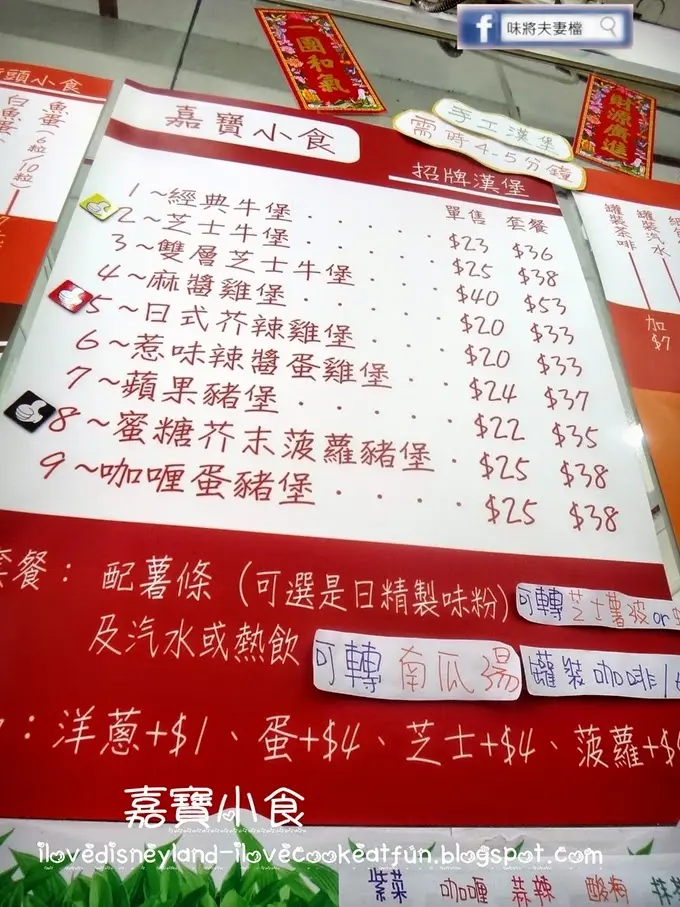 味將夫妻檔
一團和氣
財源廣進
手工漢堡
需時4-5分鐘
街頭小食
魚蛋(6粒/10粒)
白魚蛋
嘉寶小食
招牌漢堡
單售 套餐
1~經典牛堡 . . . . . . $23 $36
2~芝士牛堡 . . . . . . $25 $38
3~雙層芝士牛堡 . . . . $40 $53
4~麻醬雞堡 . . . . . . $20 $33
5~日式芥辣雞堡 . . . . $20 $33
6~惹味辣醬蛋雞堡 . . . $24 $37
7~蘋果豬堡 . . . . . . $22 $35
8~蜜糖芥末菠蘿豬堡 . $25 $38
9~咖喱蛋豬堡 . . . . . $25 $38
罐裝汽水
罐裝茶啡
加
$7
套餐：配薯條(可選是日精製味粉)
可轉芝士薯波or
及汽水或熱飲
可轉南瓜湯
罐裝咖啡/
：洋蔥+$1、蛋+$4、芝士+$4、菠蘿+$
嘉寶小食
ilovedisneyland-ilovecookeatfun.blogspot.com
紫菜 咖喱 蒜辣 酸梅